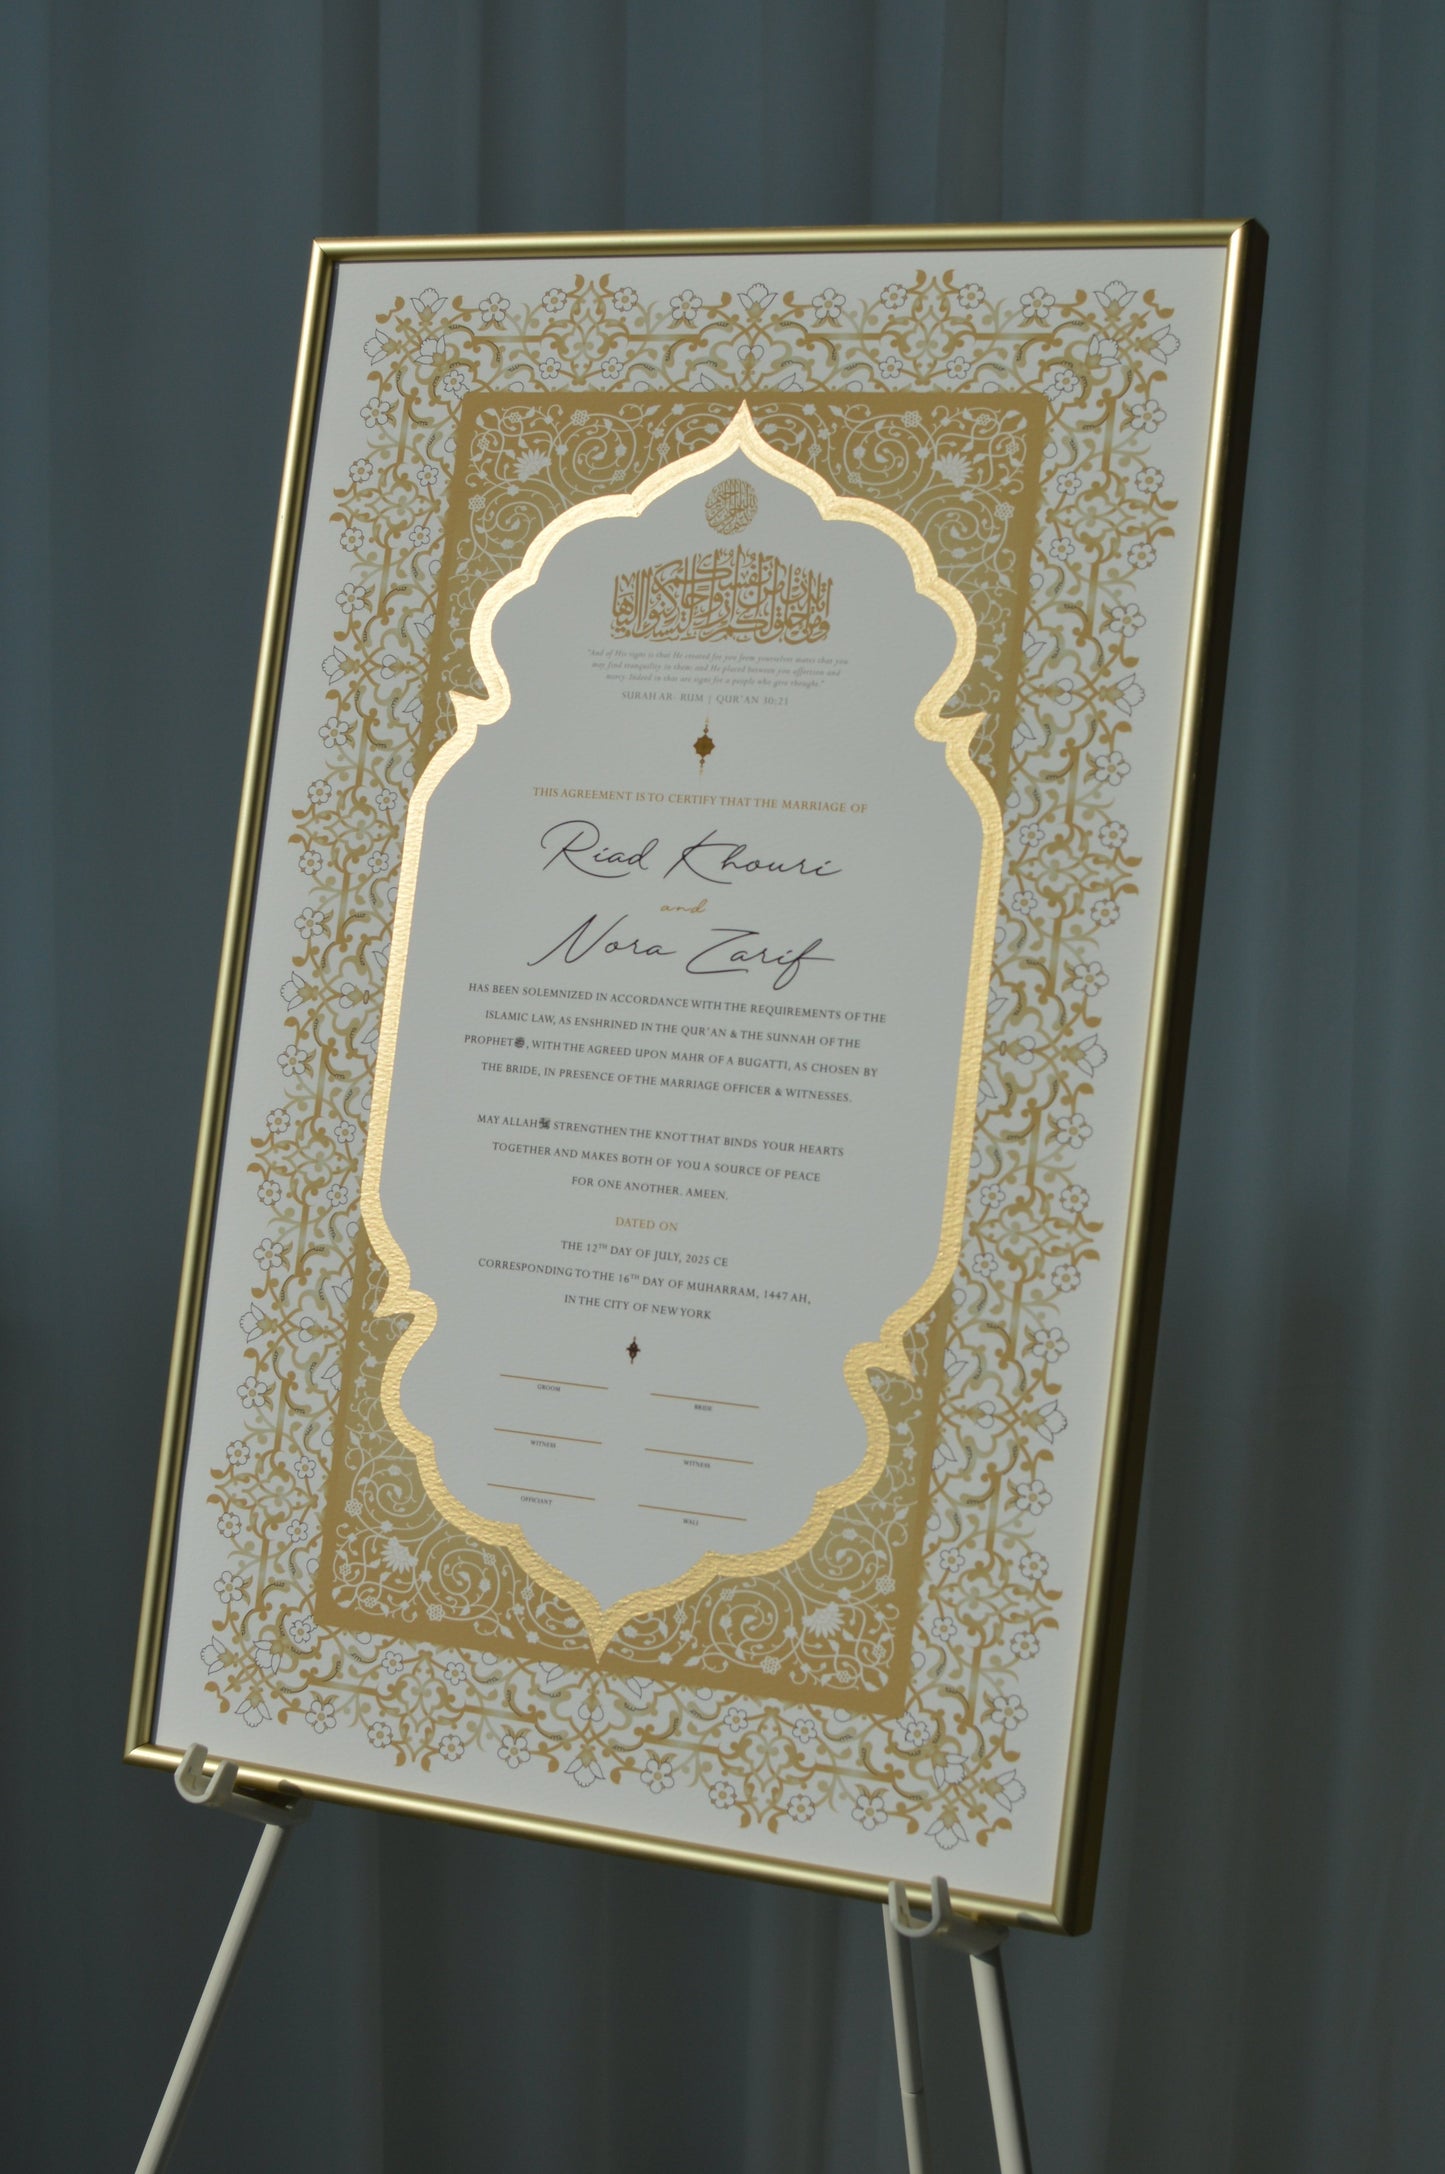 وَمِنْ آيَاتِهِ أَنْ خَلَقَ لَكُم مِّنْ أَنفُسِكُمْ أَزْوَاجًا لِّتَسْكُنُوا إِلَيْهَا
"And of His signs is that He created for you from yourselves mates that you
may find tranquility in them; and He placed between you affection and
mercy. Indeed in that are signs for a people who give thought."
SURAH AR- RUM | QUR'AN 30:21
THIS AGREEMENT IS TO CERTIFY THAT THE MARRIAGE OF
Riad Khouri
and
Nora Zarif
HAS BEEN SOLEMNIZED IN ACCORDANCE WITH THE REQUIREMENTS OF THE
ISLAMIC LAW, AS ENSHRINED IN THE QUR'AN & THE SUNNAH OF THE
PROPHETﷺ, WITH THE AGREED UPON MAHR OF A BUGATTI, AS CHOSEN BY
THE BRIDE, IN PRESENCE OF THE MARRIAGE OFFICER & WITNESSES.
MAY ALLAH STRENGTHEN THE KNOT THAT BINDS YOUR HEARTS
TOGETHER AND MAKES BOTH OF YOU A SOURCE OF PEACE
FOR ONE ANOTHER. AMEEN.
DATED ON
THE 12TH DAY OF JULY, 2025 CE
CORRESPONDING TO THE 16TH DAY OF MUHARRAM, 1447 AH,
IN THE CITY OF NEW YORK
GROOM
BRIDE
WITNESS
WITNESS
OFFICIANT
WALI